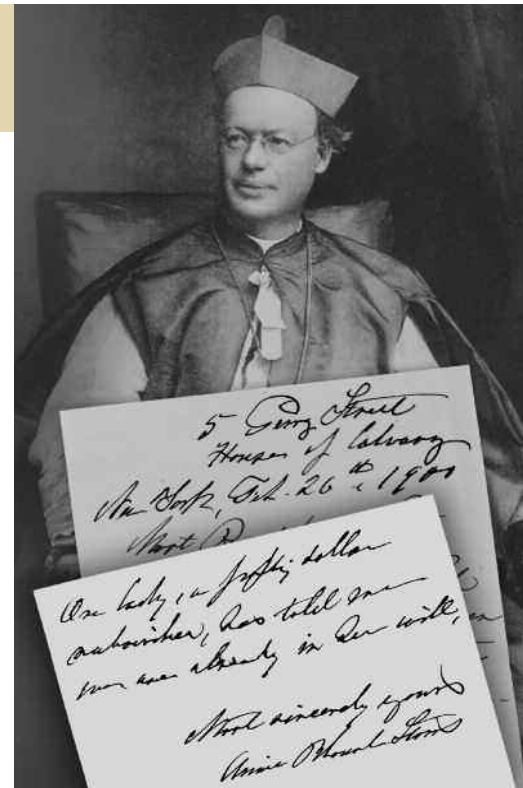 5 Perry Street
House of Calvary
New York, Feb. 26th 1900
Most
One lady, a fifty dollar
subscriber, has told me
we are already in her will,
Most sincerely yours
Annie Blount Storrs